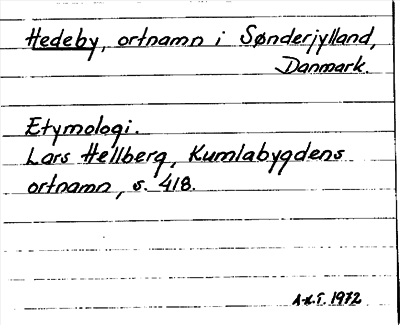 Hedeby, ortnamn i Sønderjylland,
Danmark.
Etymologi.
Lars Hellberg, Kumlabygdens
ortnamn, s. 418.
A-L.T. 1972